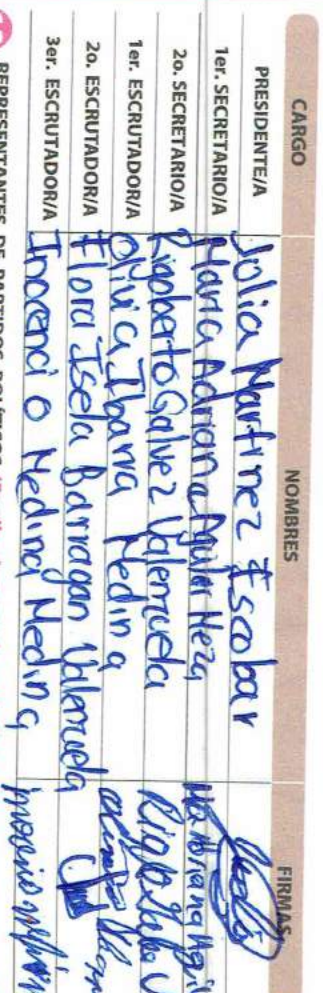 CARGO NOMBRES FIRMAS
PRESIDENTE/A Jolia Martinez Escobar
1er. SECRETARIO/A Maria Adriana Aguilar Meza
2o. SECRETARIO/A Rigoberto Galvez Valenzuela
1er. ESCRUTADOR/A Olivia Ibarra Medina
2o. ESCRUTADOR/A Flora Isela Barragan Valenzuela
3er. ESCRUTADOR/A Inocencio Medina Medina
REPRESENTANTES DE PARTIDOS POLÍTICOS